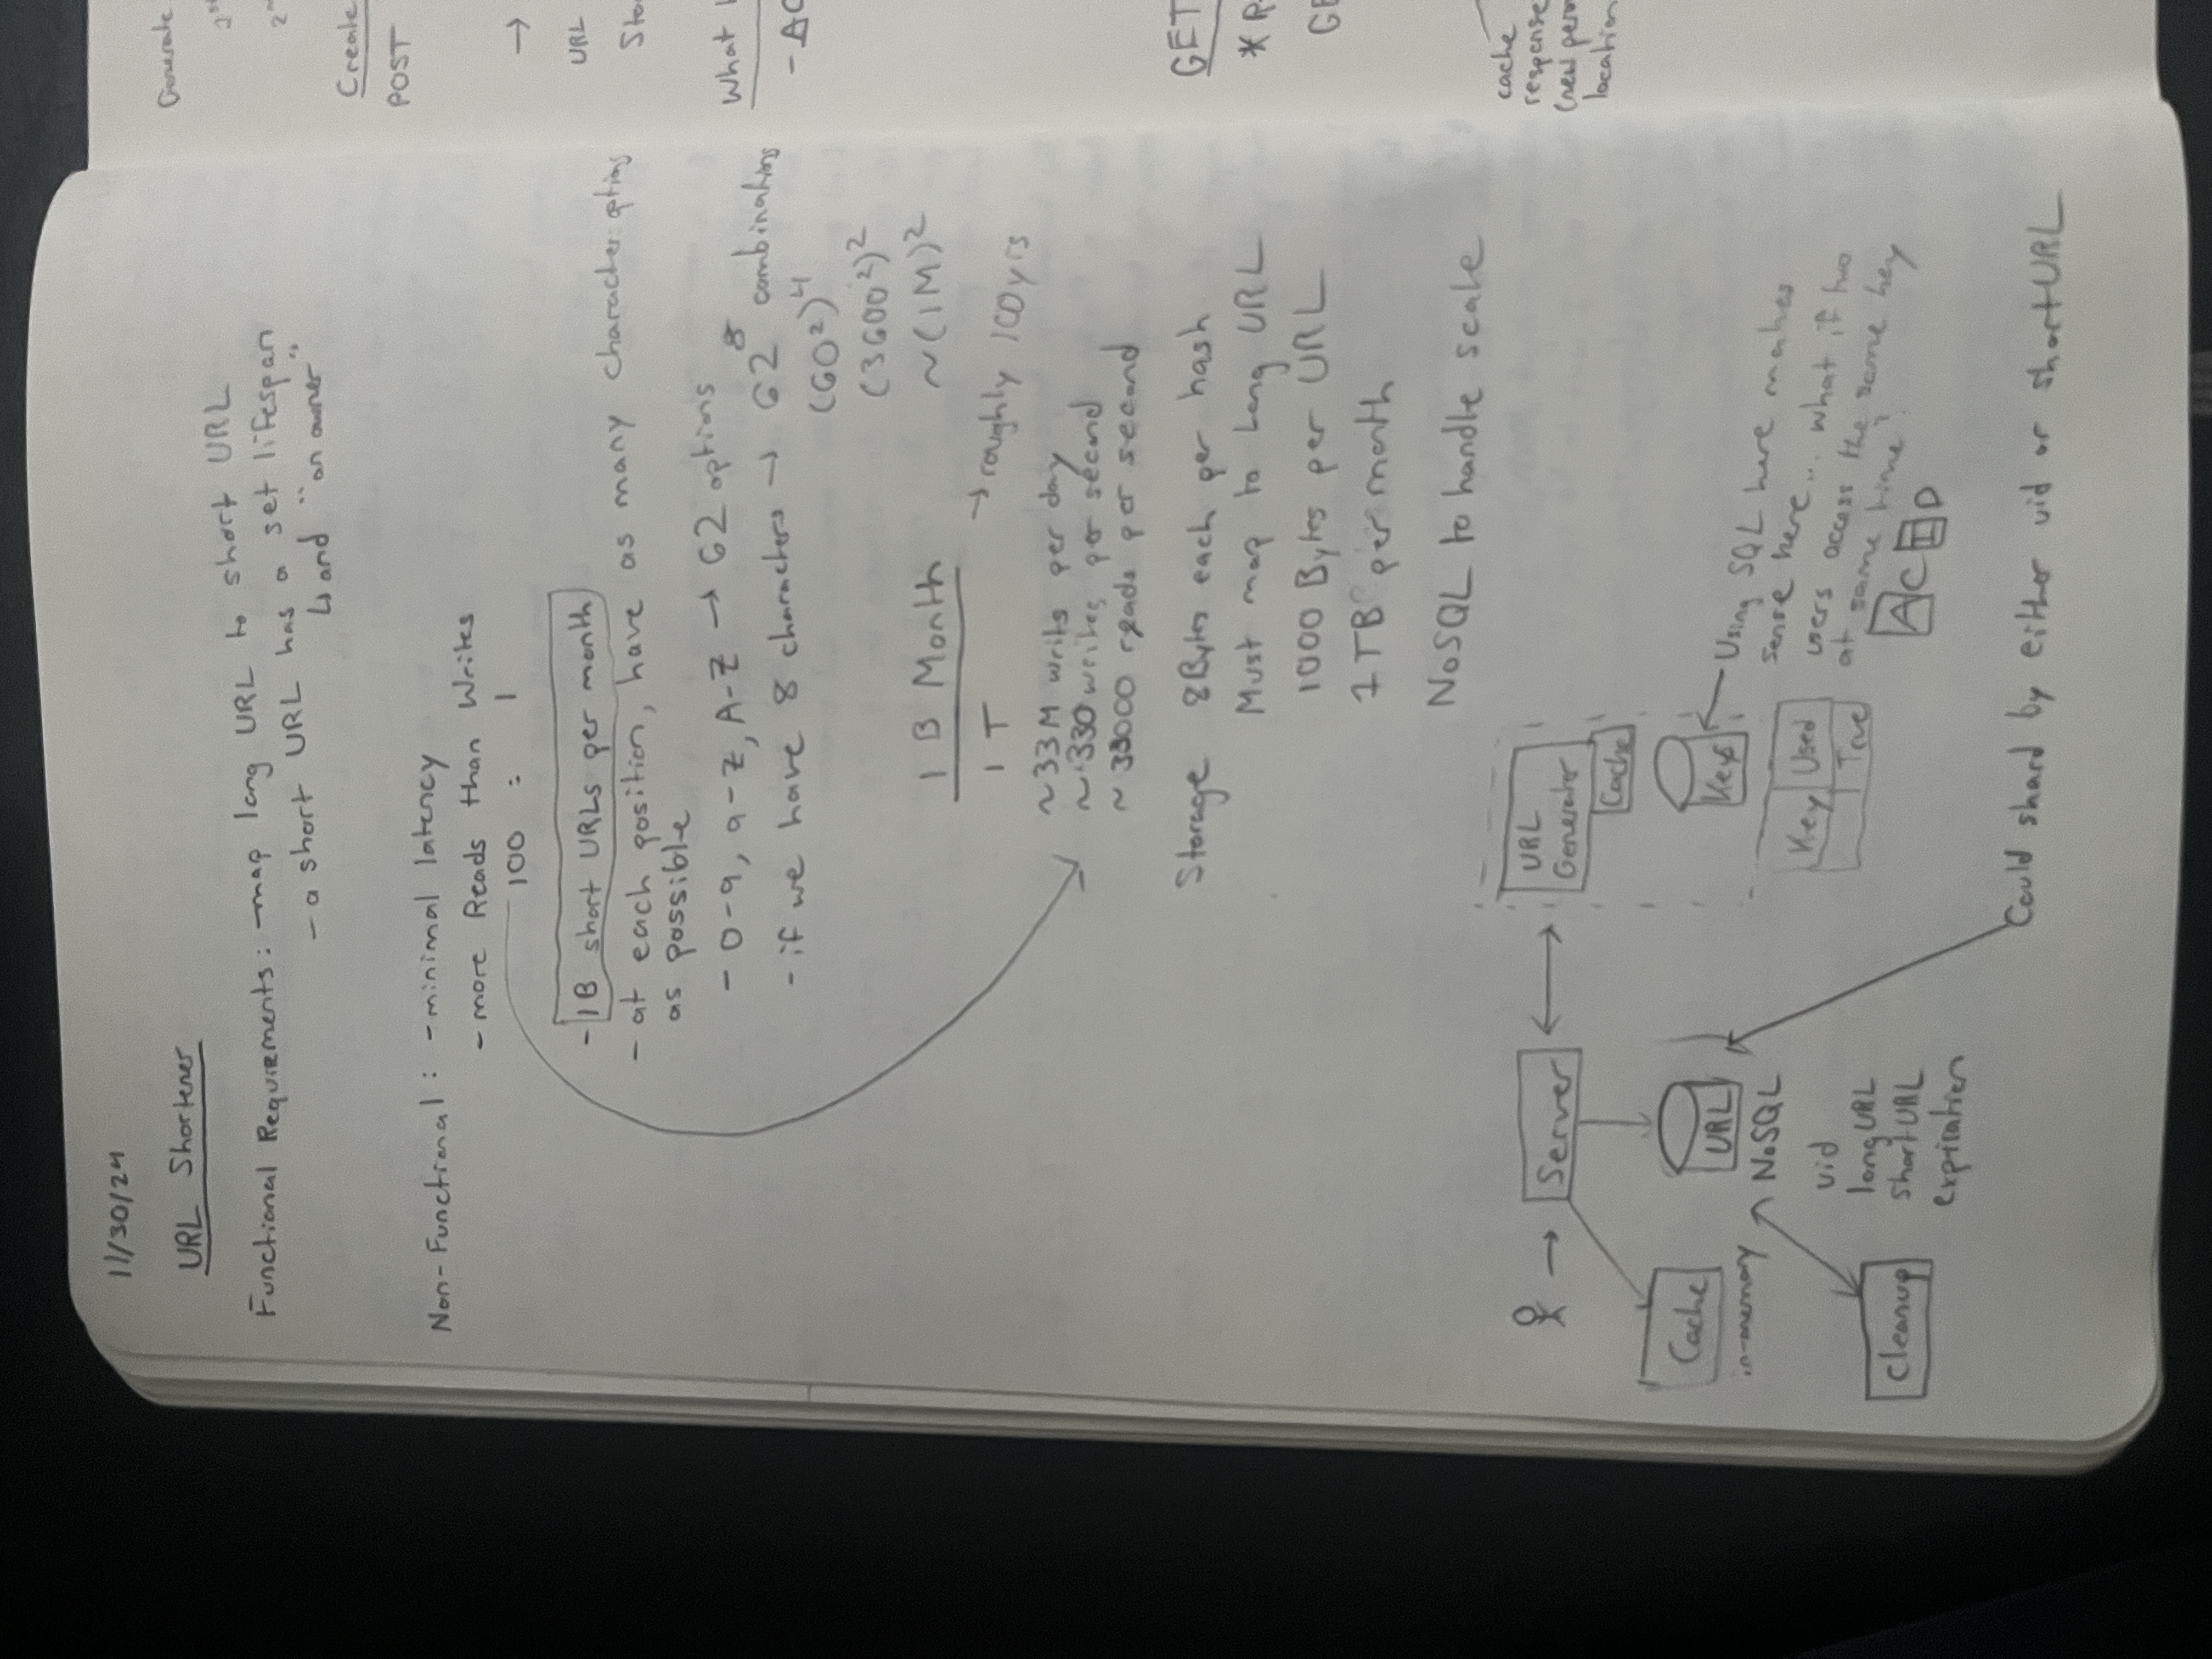 11/30/24
URL Shortener
Functional Requirements: - map long URL to short URL
- a short URL has a set lifespan
↳ and "an owner"
Non-Functional: - minimal latency
- more Reads than Writes
100 : 1
- 1B short URLs per month
- at each position, have as many character options
as possible
- 0-9, a-z, A-Z → 62 options
- if we have 8 characters → 62⁸ combinations
(60²)⁴
(3600²)²
~(1M)²
1 B Month
1 T
→ roughly 100yrs
~33M writes per day
~330 writes per second
~33000 reads per second
Storage 8Bytes each per hash
Must map to Long URL
1000 Bytes per URL
1 TB per month
NoSQL to handle scale
Server
URL
Generator
Cache
Cache
in-memory
URL
NoSQL
uid
longURL
shortURL
expiration
Cleanup
Keys
Key Used
True
Using SQL here makes
sense here... what if two
users access the same key
at same time?
ACID
Could shard by either uid or shortURL
Generate
Create
POST
→
URL
What
GET
cache
response
(new
location